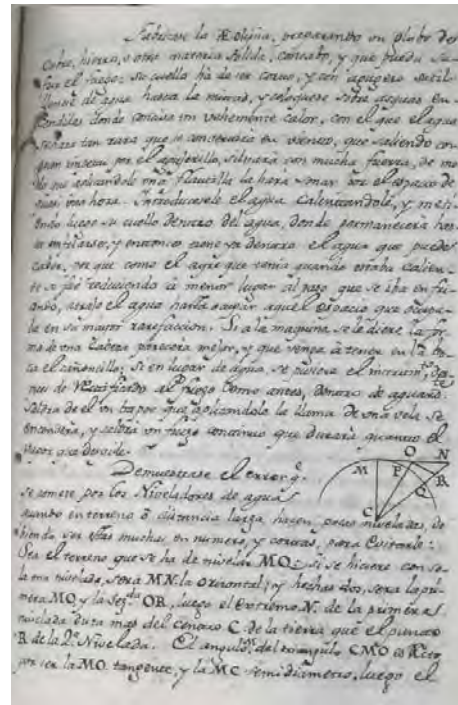 Fabricase la Eolipila, preparando un globo de
Cobre, hierro, u otra materia solida, concabo, y que pueda su-
frir el fuego: su cuello ha de ser corvo, y con agugero sutil
de agua hasta la mitad, y coloquese sobre asquas en-
cendidas donde conciva un vehemente calor, con el que el agua
tan rara que se convertirá en viento, que saliendo con
gran por el agugerillo, silvará con mucha fuerza, de mo-
do que aplicandole una Flautilla la hará sonar por el espacio de
una hora. Introducesele el agua calentandole, y meti-
endo luego su cuello dentro del agua, donde permanecerá has-
ta enfriarse, y entonces tiene ya dentro el agua que puede
caber, porque como el ayre que tenia quando estaba calien-
te se fue reduciendo a menor lugar al paso que se iba enfri-
ando, atrajo el agua hasta ocupar aquel espacio que ocupa-
ba en su mayor rarefaccion. Si a la maquina se le diere la for-
ma de una Cabeza parecerá mejor, y que venga a tener en la bo-
ca el cañoncillo; Si en lugar de agua, se pusiera el
al fuego como antes, dentro de
Saldra de el un vapor que aplicandole la llama de una vela se
encendera, y saldrá un fuego continuo que durará quanto el
vapor que despide.
Demuestrase el error q.e
se comete por los Niveladores de agua
quando en terreno o distancia larga hacen pocas niveladas, de-
biendo ser estas muchas en numero, y cortas, para evitarle:
Sea el terreno que se ha de nivelar MO: si se hiciere con so-
la una nivelada, sera MN la orizontal; y hechas dos, sera la pri-
mera MO, y la Seg.da OR, luego el Extremo N. de la primera
nivelada dista mas del centro C de la tierra que el punto
R de la 2.a Nivelada. El angulo del triangulo CMO es Recto
por ser la MO tangente, y la MC semidiametro, luego el
M P O N
R
Q
C